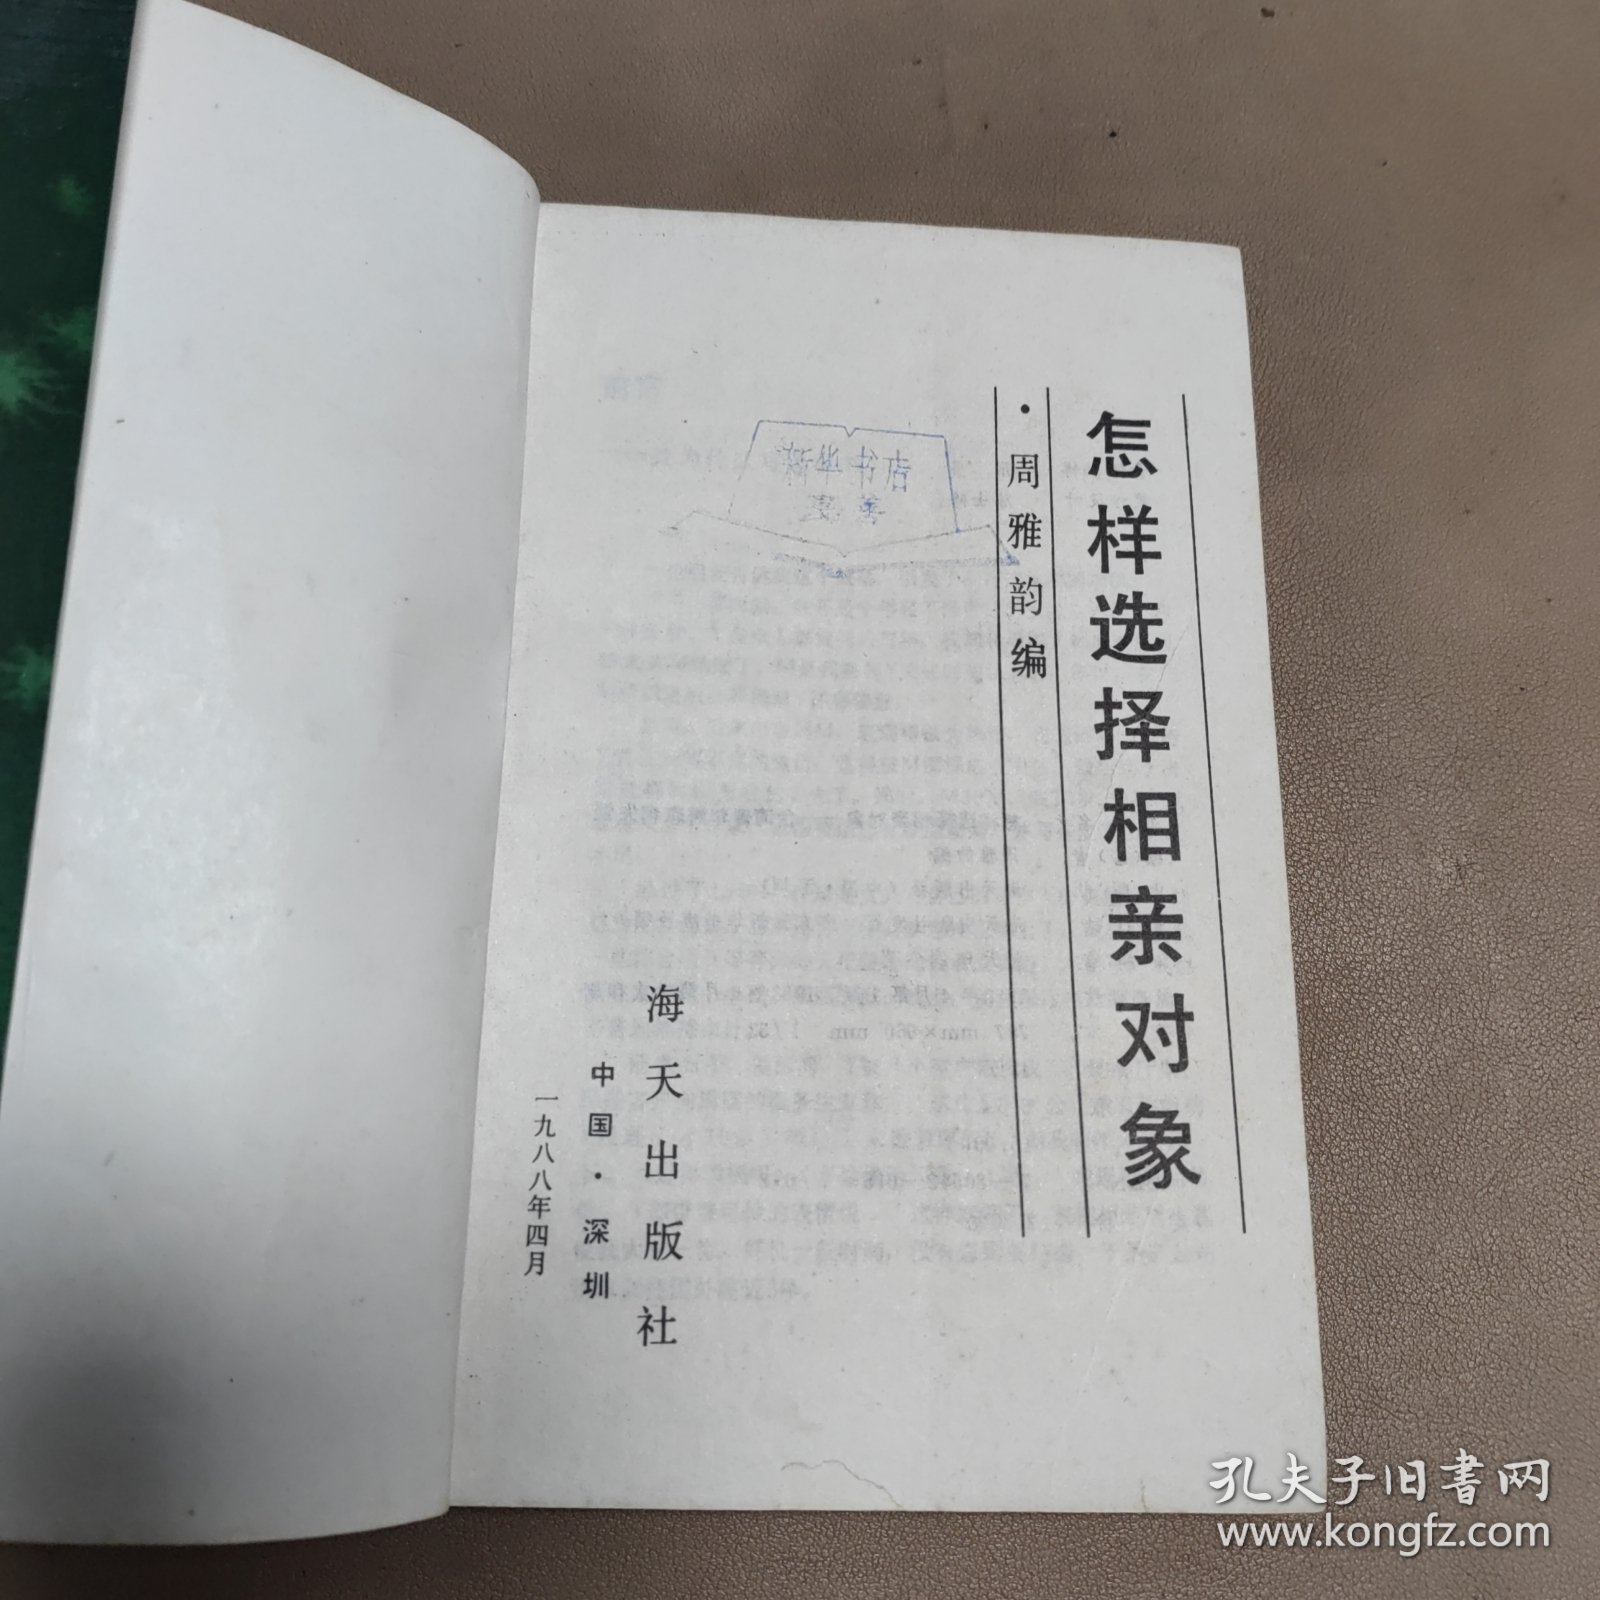 怎样选择相亲对象
·周雅韵编
新华书店
海天出版社
中国·深圳
一九八八年四月
孔夫子旧书网
www.kongfz.com